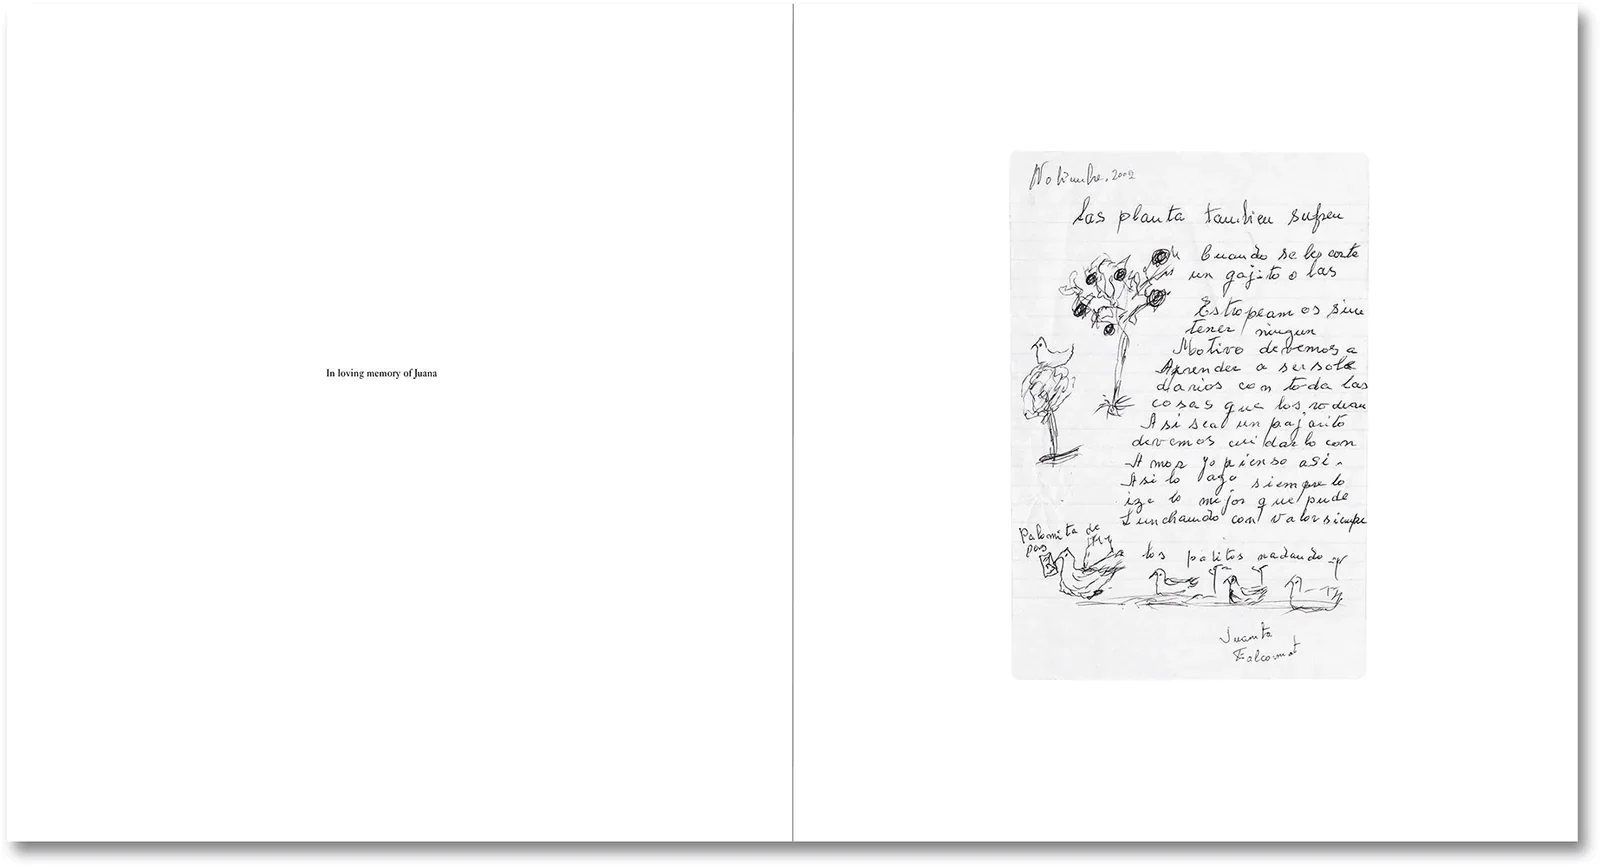 In loving memory of Juana
Noviembre. 2002
las planta tambien sufren
Cuando se les corte
un gajito o las
Estropeamos sin
tener ningun
Motivo devemos a
Aprender a ser soli
darios con toda las
cosas que los rodean
Asi sea un pajarito
devemos cuidarlo con
Amor yo pienso asi.
Asi lo ago siempre lo
ize lo mejor que pude
Lunchando con valor siempre
Palomita de
pas
los patitos nadando
Juanita